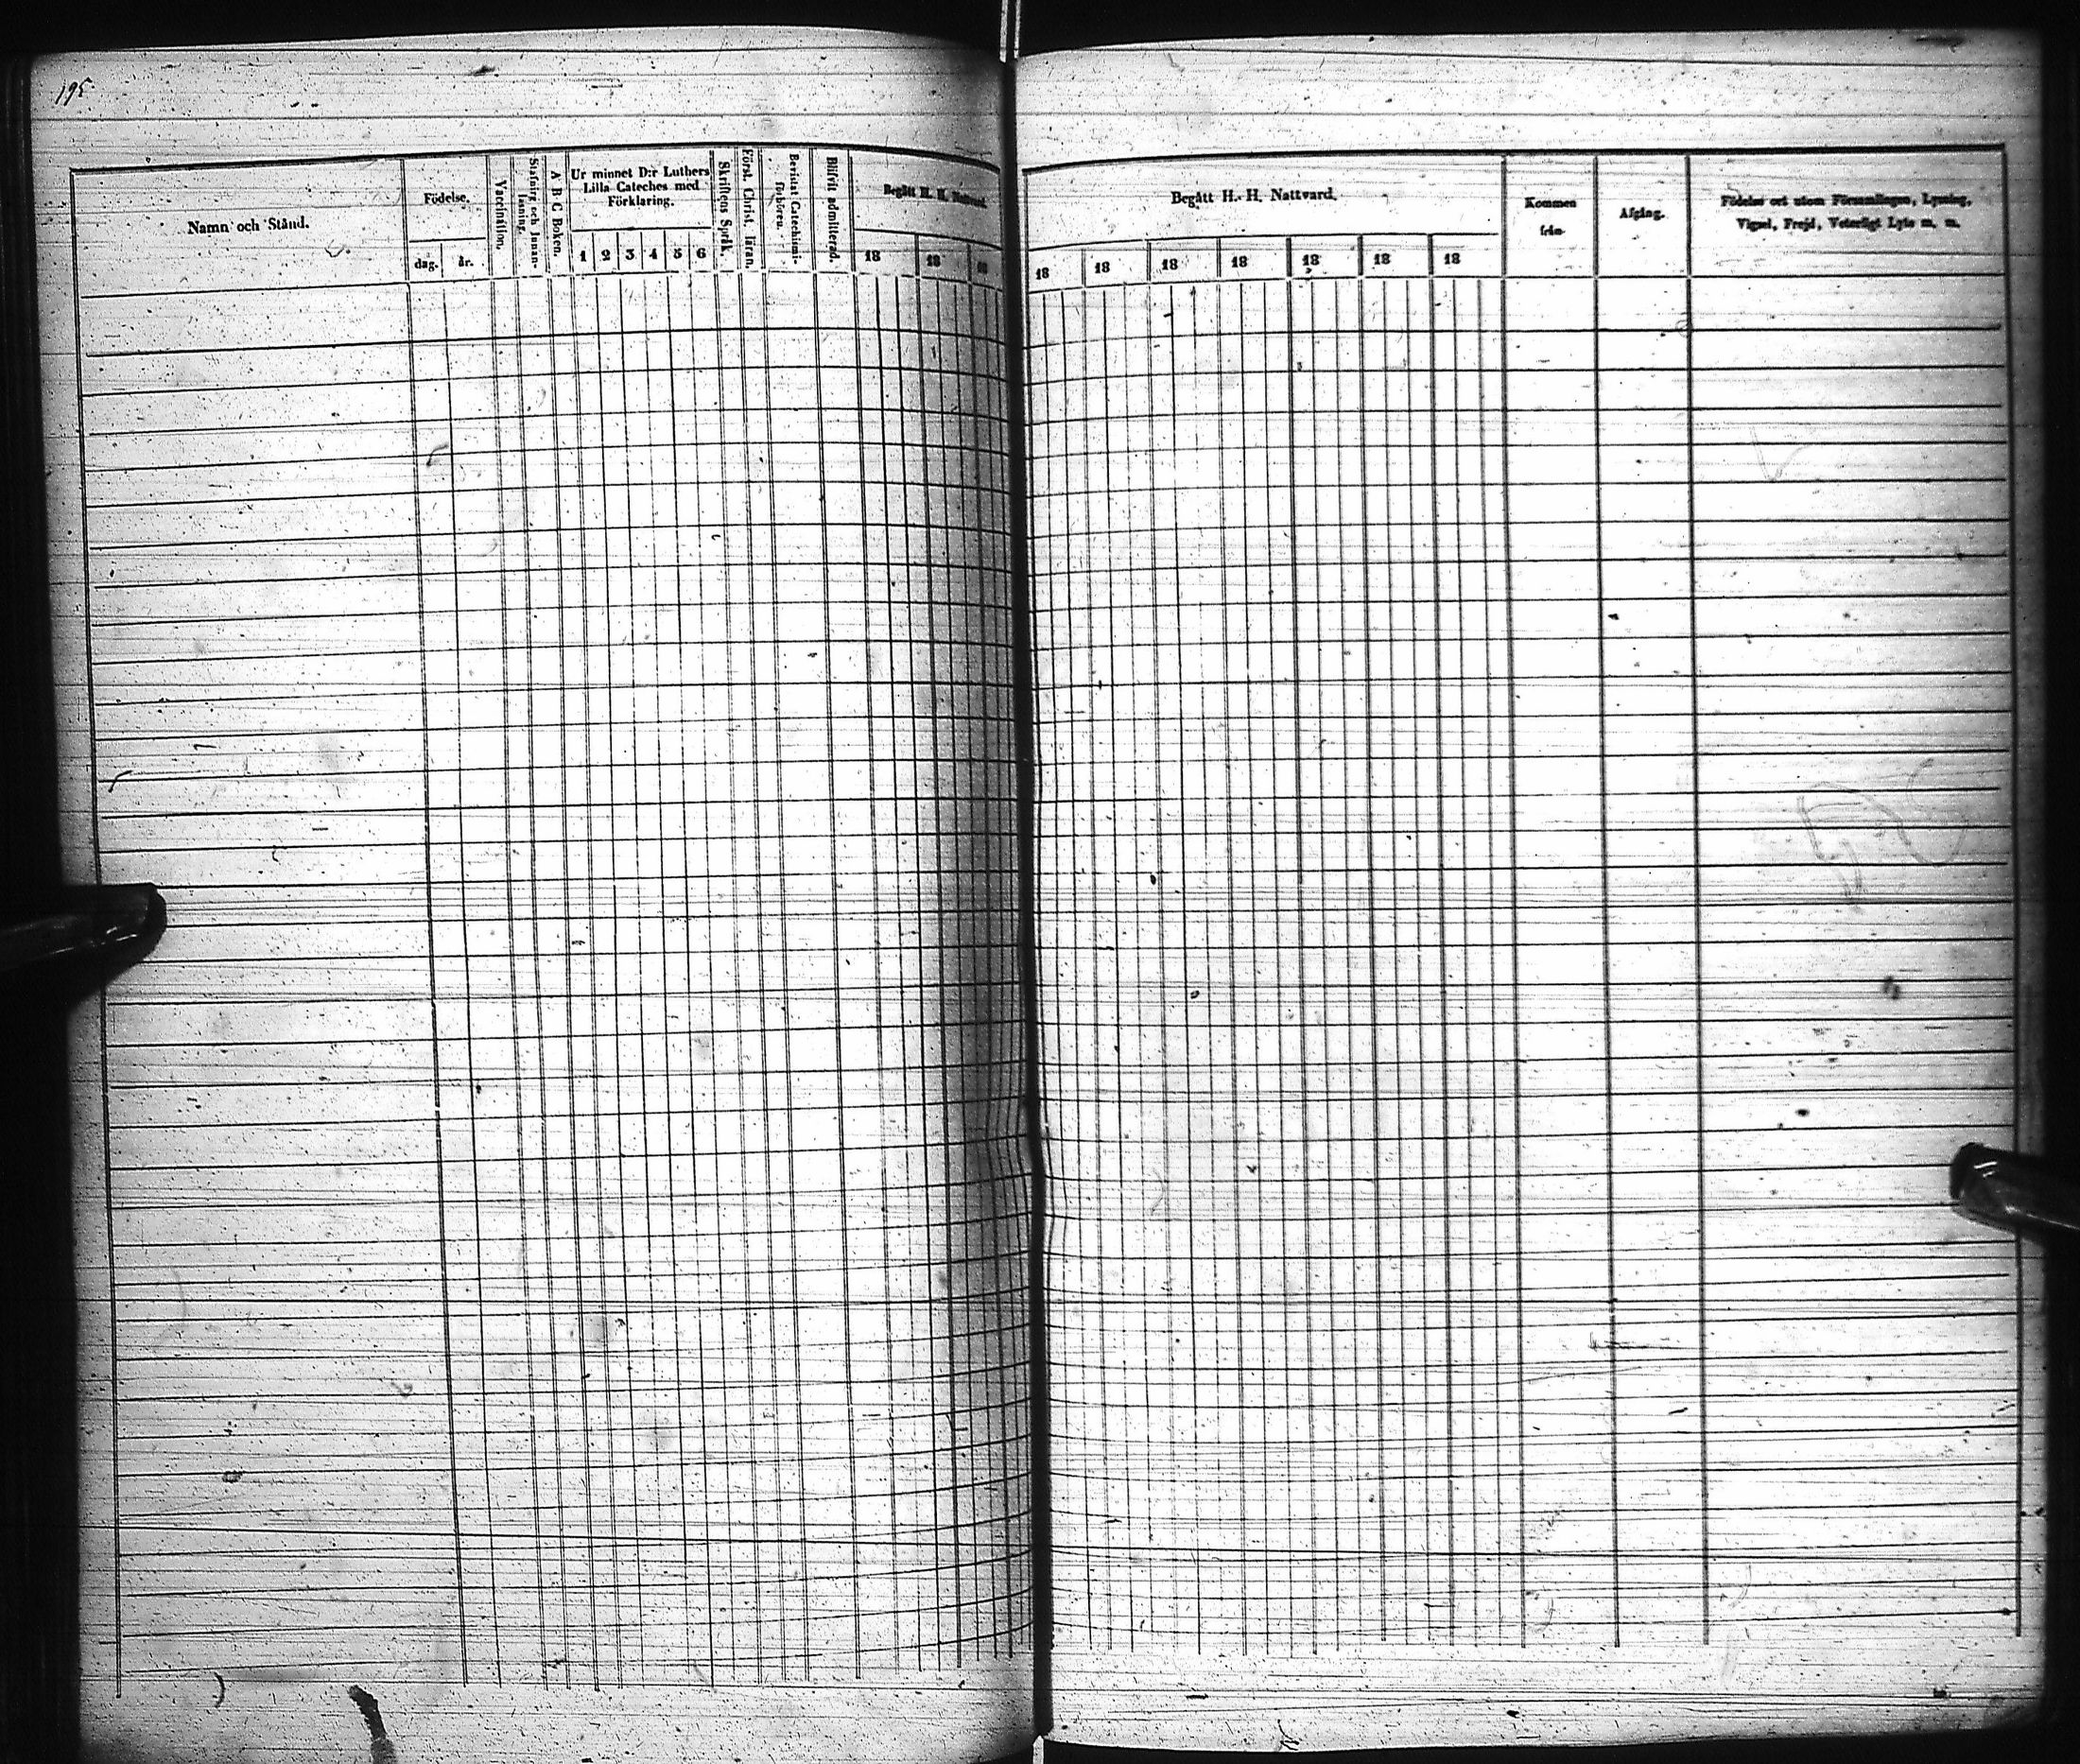 195
Namn och Stånd.
Födelse.
dag.
år.
Vaccination.
Stafning och Innan-
läsning.
A B C Boken.
Ur minnet D:r Luthers
Lilla Cateches med
Förklaring.
1 2 3 4 5 6
Skriftens Språk.
Först. Christ. läran.
Bevistat Catechismi-
förhören.
Blifvit admitterad.
Begått H. H. Nattvard.
18 18 18
Begått H. H. Nattvard.
18 18 18 18 18 18 18
Kommen
från
Afgång.
Födelse ort utom Församlingen, Lysning,
Vigsel, Frejd, Veterligt Lyte m. m.